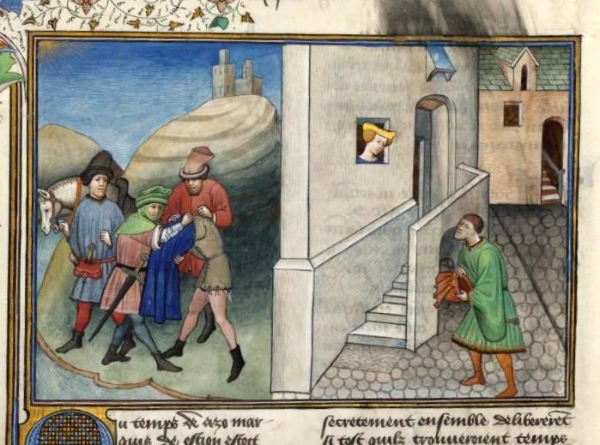 u temps de azo mar-
quis de estion estoit
secretement ensemble delibererẽt
si tost quilz trouueroient temps